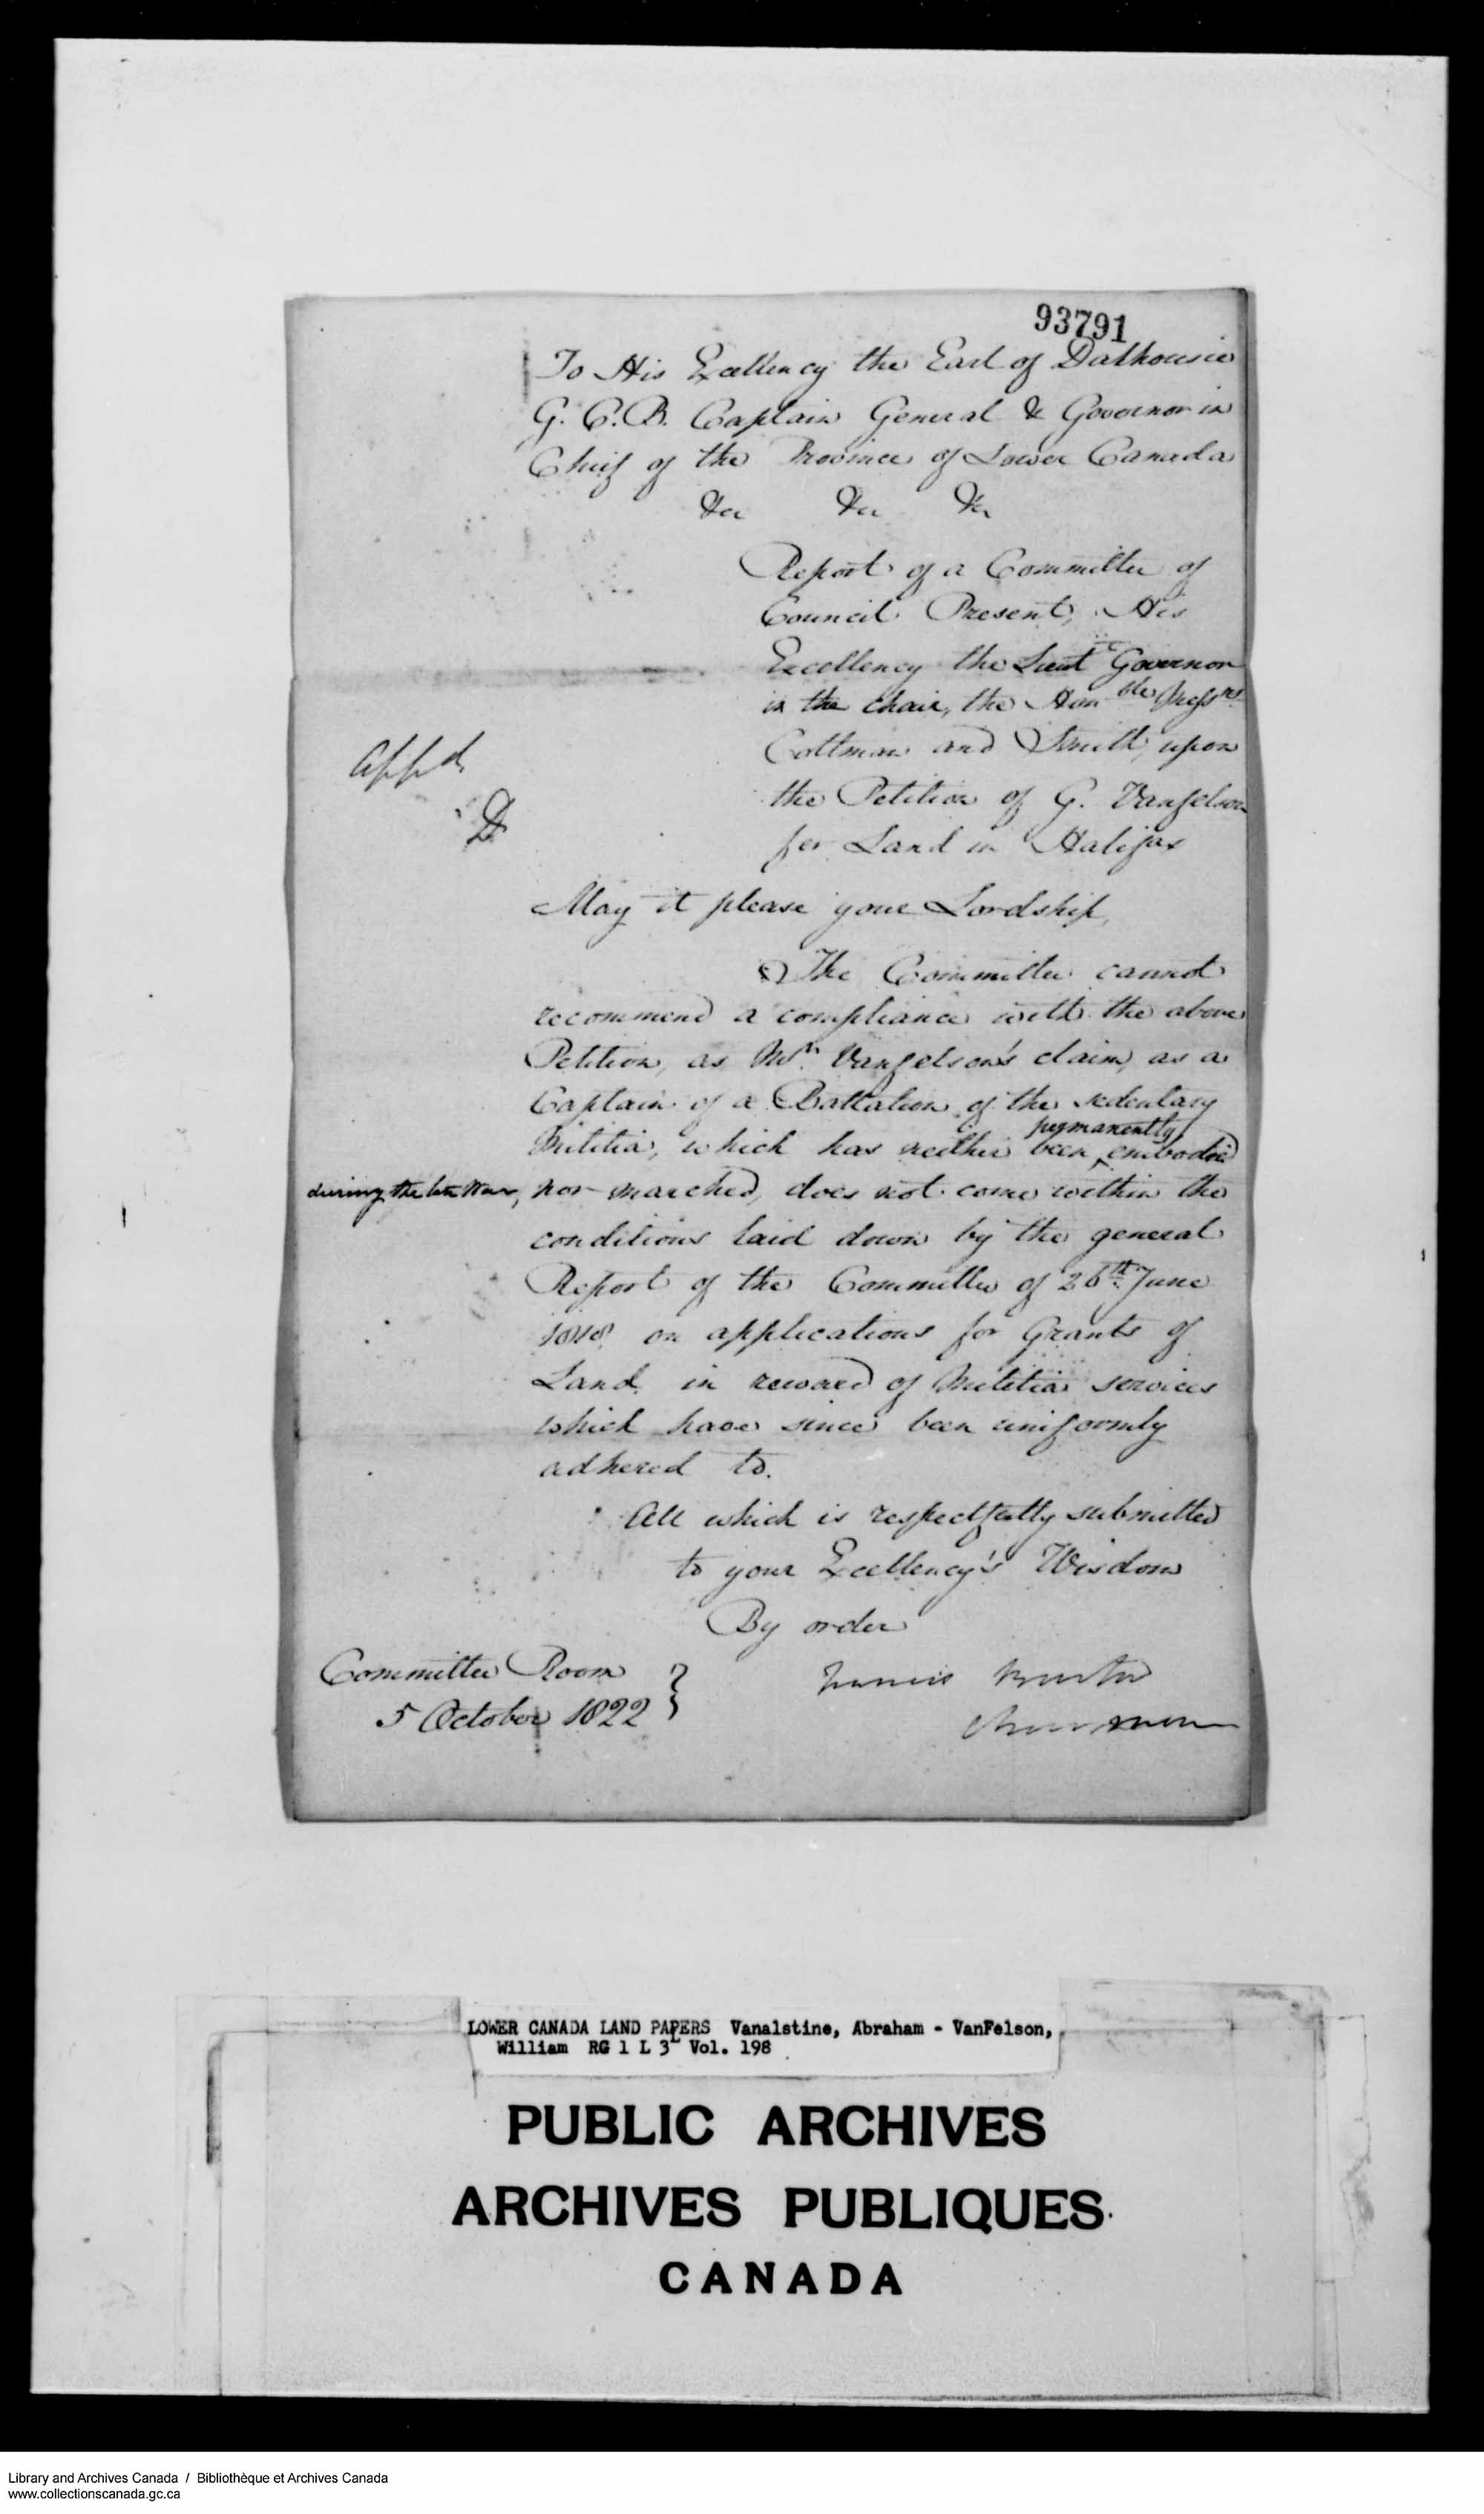 93791
To His Excellency the Earl of Dalhousie
G. C. B. Captain General & Governor in
Chief of the Province of Lower Canada
&ca &ca &c
Report of a Committee of
Council Present, His
Excellency the Lieut Governor
in the chair, the Honble Messrs
Coltman and Smith, upon
the Petition of G. Vanfelson
for Land in Halifax
Appd.
D
May it please your Lordship,
The Committee cannot
recommend a compliance with the above
Petition, as Mr. Vanfelson's claim, as a
Captain of a Battalion of the sedentary
permanently
Militia, which has neither been ‸ embodied
during the late War, nor marched, does not come within the
conditions laid down by the general
Report of the Committee of 26th June
1818 on applications for Grants of
Land in reward of Militia services
which have since been uniformly
adhered to.
All which is respectfully submitted
to your Excellency's Wisdom
By order
Committee Room
5 October 1822
Francis Burton
Chairman
LOWER CANADA LAND PAPERS Vanalstine, Abraham - VanFelson,
William RG 1 L 3L Vol. 198
PUBLIC ARCHIVES
ARCHIVES PUBLIQUES
CANADA
Library and Archives Canada / Bibliothèque et Archives Canada
www.collectionscanada.gc.ca